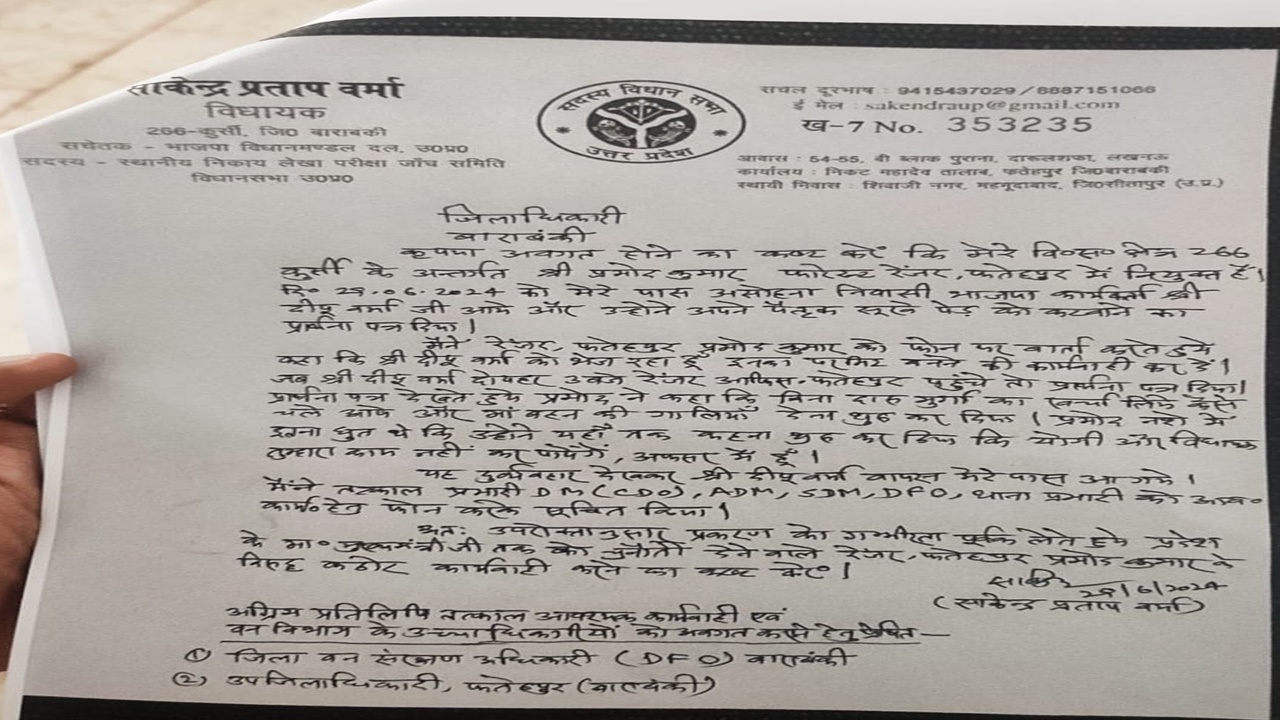 साकेन्द्र प्रताप वर्मा
विधायक
266-कुर्सी, जि0 बाराबंकी
सचेतक - भाजपा विधानमण्डल दल, उ0प्र0
सदस्य - स्थानीय निकाय लेखा परीक्षा जाँच समिति
विधानसभा उ0प्र0
सदस्य विधान सभा
उत्तर प्रदेश
सचल दूरभाष : 9415437029 / 8887151066
ई मेल : sakendraup@gmail.com
ख-7 No. 353235
आवास : 54-55, बी ब्लाक पुराना, दारूलशफा, लखनऊ
कार्यालय : निकट महादेव तालाब, फतेहपुर जि0बाराबंकी
स्थायी निवास : शिवाजी नगर, महमूदाबाद, जि0सीतापुर (उ.प्र.)
जिलाधिकारी
बाराबंकी
कृपया अवगत होने का कष्ट करें कि मेरे वि०स० क्षेत्र 266
कुर्सी के अन्तर्गत श्री प्रमोद कुमार फारेस्ट रेंजर, फतेहपुर में नियुक्त हैं।
दि० 29.06.2024 को मेरे पास असोहना निवासी भाजपा कार्यकर्ता श्री
दीपू वर्मा जी आये और उन्होने अपने पैतृक सूखे पेड़ को कटवाने का
प्रार्थना पत्र दिया।
मैंने रेंजर, फतेहपुर प्रमोद कुमार को फोन पर वार्ता करते हुये
कहा कि श्री दीपू वर्मा को भेज रहा हूँ इनका परमिट बनने की कार्यवाही कर दें।
जब श्री दीपू वर्मा दोपहर 3 बजे रेंजर आफिस-फतेहपुर पहुंचे तो प्रार्थना पत्र दिया।
प्रार्थना पत्र देखते हुये प्रमोद ने कहा कि बिना दारू मुर्गा का खर्चा लिये कैसे
चले आये और मां बहन की गालियाँ देना शुरू कर दिया। प्रमोद नशे में
इतना धुत थे कि उन्होंने यहाँ तक कहना शुरू कर दिया कि योगी और विधायक
तुम्हारा काम नहीं कर पायेंगे, अफसर मैं हूँ।
यह दुर्व्यवहार देखकर श्री दीपू वर्मा वापस मेरे पास आ गये।
मैंने तत्काल प्रभारी DM (CDO), ADM, SDM, DFO, थाना प्रभारी को आव०
कार्य० हेतु फोन करके सूचित किया।
अतः उपरोक्तानुसार प्रकरण को गम्भीरता पूर्वक लेते हुये प्रदेश
के मा० मुख्यमंत्री जी तक को चुनौती देने वाले रेंजर, फतेहपुर प्रमोद कुमार के
विरुद्ध कठोर कार्यवाही करने का कष्ट करें।
29/6/2024
(साकेन्द्र प्रताप वर्मा)
अग्रिम प्रतिलिपि तत्काल आवश्यक कार्यवाही एवं
वन विभाग के उच्चाधिकारीयों को अवगत कराने हेतु प्रेषित—
① जिला वन संरक्षण अधिकारी (DFO) बाराबंकी
② उपजिलाधिकारी, फतेहपुर (बाराबंकी)